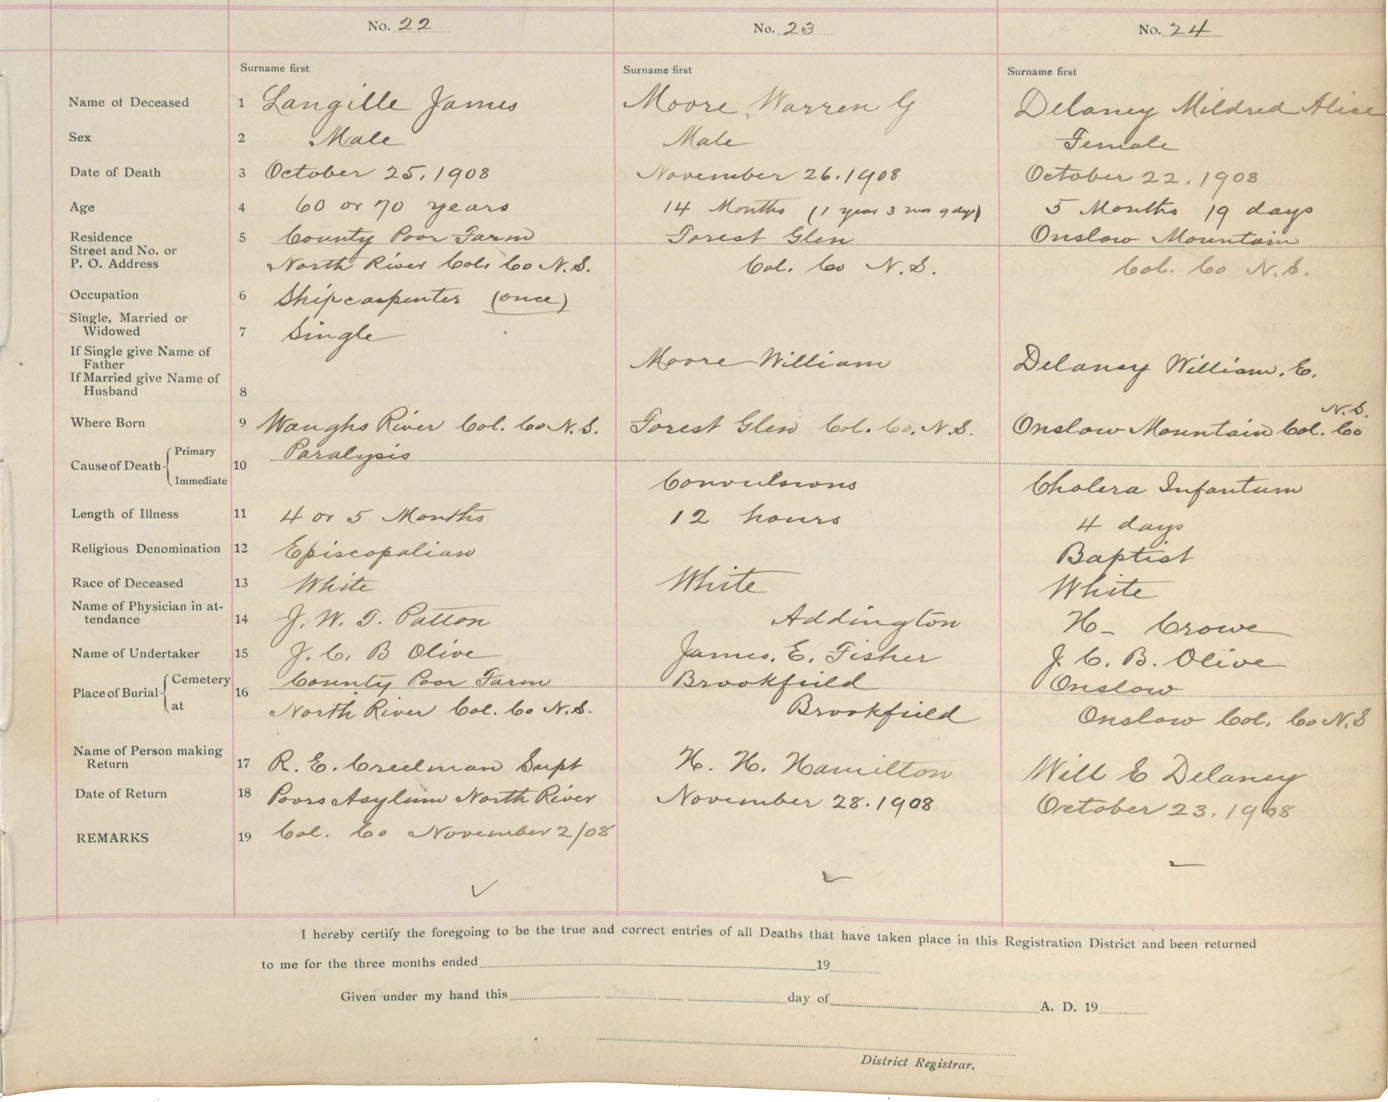 No. 22 No. 23 No. 24
Surname first Surname first Surname first
Name of Deceased 1 Langille James Moore, Warren G Delaney Mildred Alice
Sex 2 Male Male Female
Date of Death 3 October 25, 1908 November 26. 1908 October 22, 1908
Age 4 60 or 70 years 14 Months (1 year 3 mos 9 dys) 5 Months 19 days
Residence 5 County Poor Farm Forest Glen Onslow Mountain
Street and No. or
P. O. Address North River Col. Co N.S. Col. Co N.S. Col. Co N.S.
Occupation 6 Shipcarpenter (once)
Single, Married or
Widowed 7 Single
If Single give Name of
Father Moore William Delaney William. E.
If Married give Name of
Husband 8
N.S.
Where Born 9 Waughs River Col. Co N.S. Forest Glen Col. Co. N.S. Onslow Mountain Col. Co
Cause of Death Primary Paralysis
10
Immediate Convulsions Cholera Infantum
Length of Illness 11 4 or 5 Months 12 hours 4 days
Religious Denomination 12 Episcopalian Baptist
Race of Deceased 13 White White White
Name of Physician in at-
tendance 14 J. W. T. Patton Addington H- Crowe
Name of Undertaker 15 J. C. B Olive James. E. Fisher J. C. B. Olive
Place of Burial Cemetery 16 County Poor Farm Brookfield Onslow
at North River Col. Co N.S. Brookfield Onslow Col. Co N.S
Name of Person making
Return 17 R. E. Creelman Supt H. H. Hamilton Will E Delaney
Date of Return 18 Poors Asylum North River November 28. 1908 October 23. 1908
REMARKS 19 Col. Co November 2/08
I hereby certify the foregoing to be the true and correct entries of all Deaths that have taken place in this Registration District and been returned
to me for the three months ended 19
Given under my hand this day of A. D. 19
District Registrar.